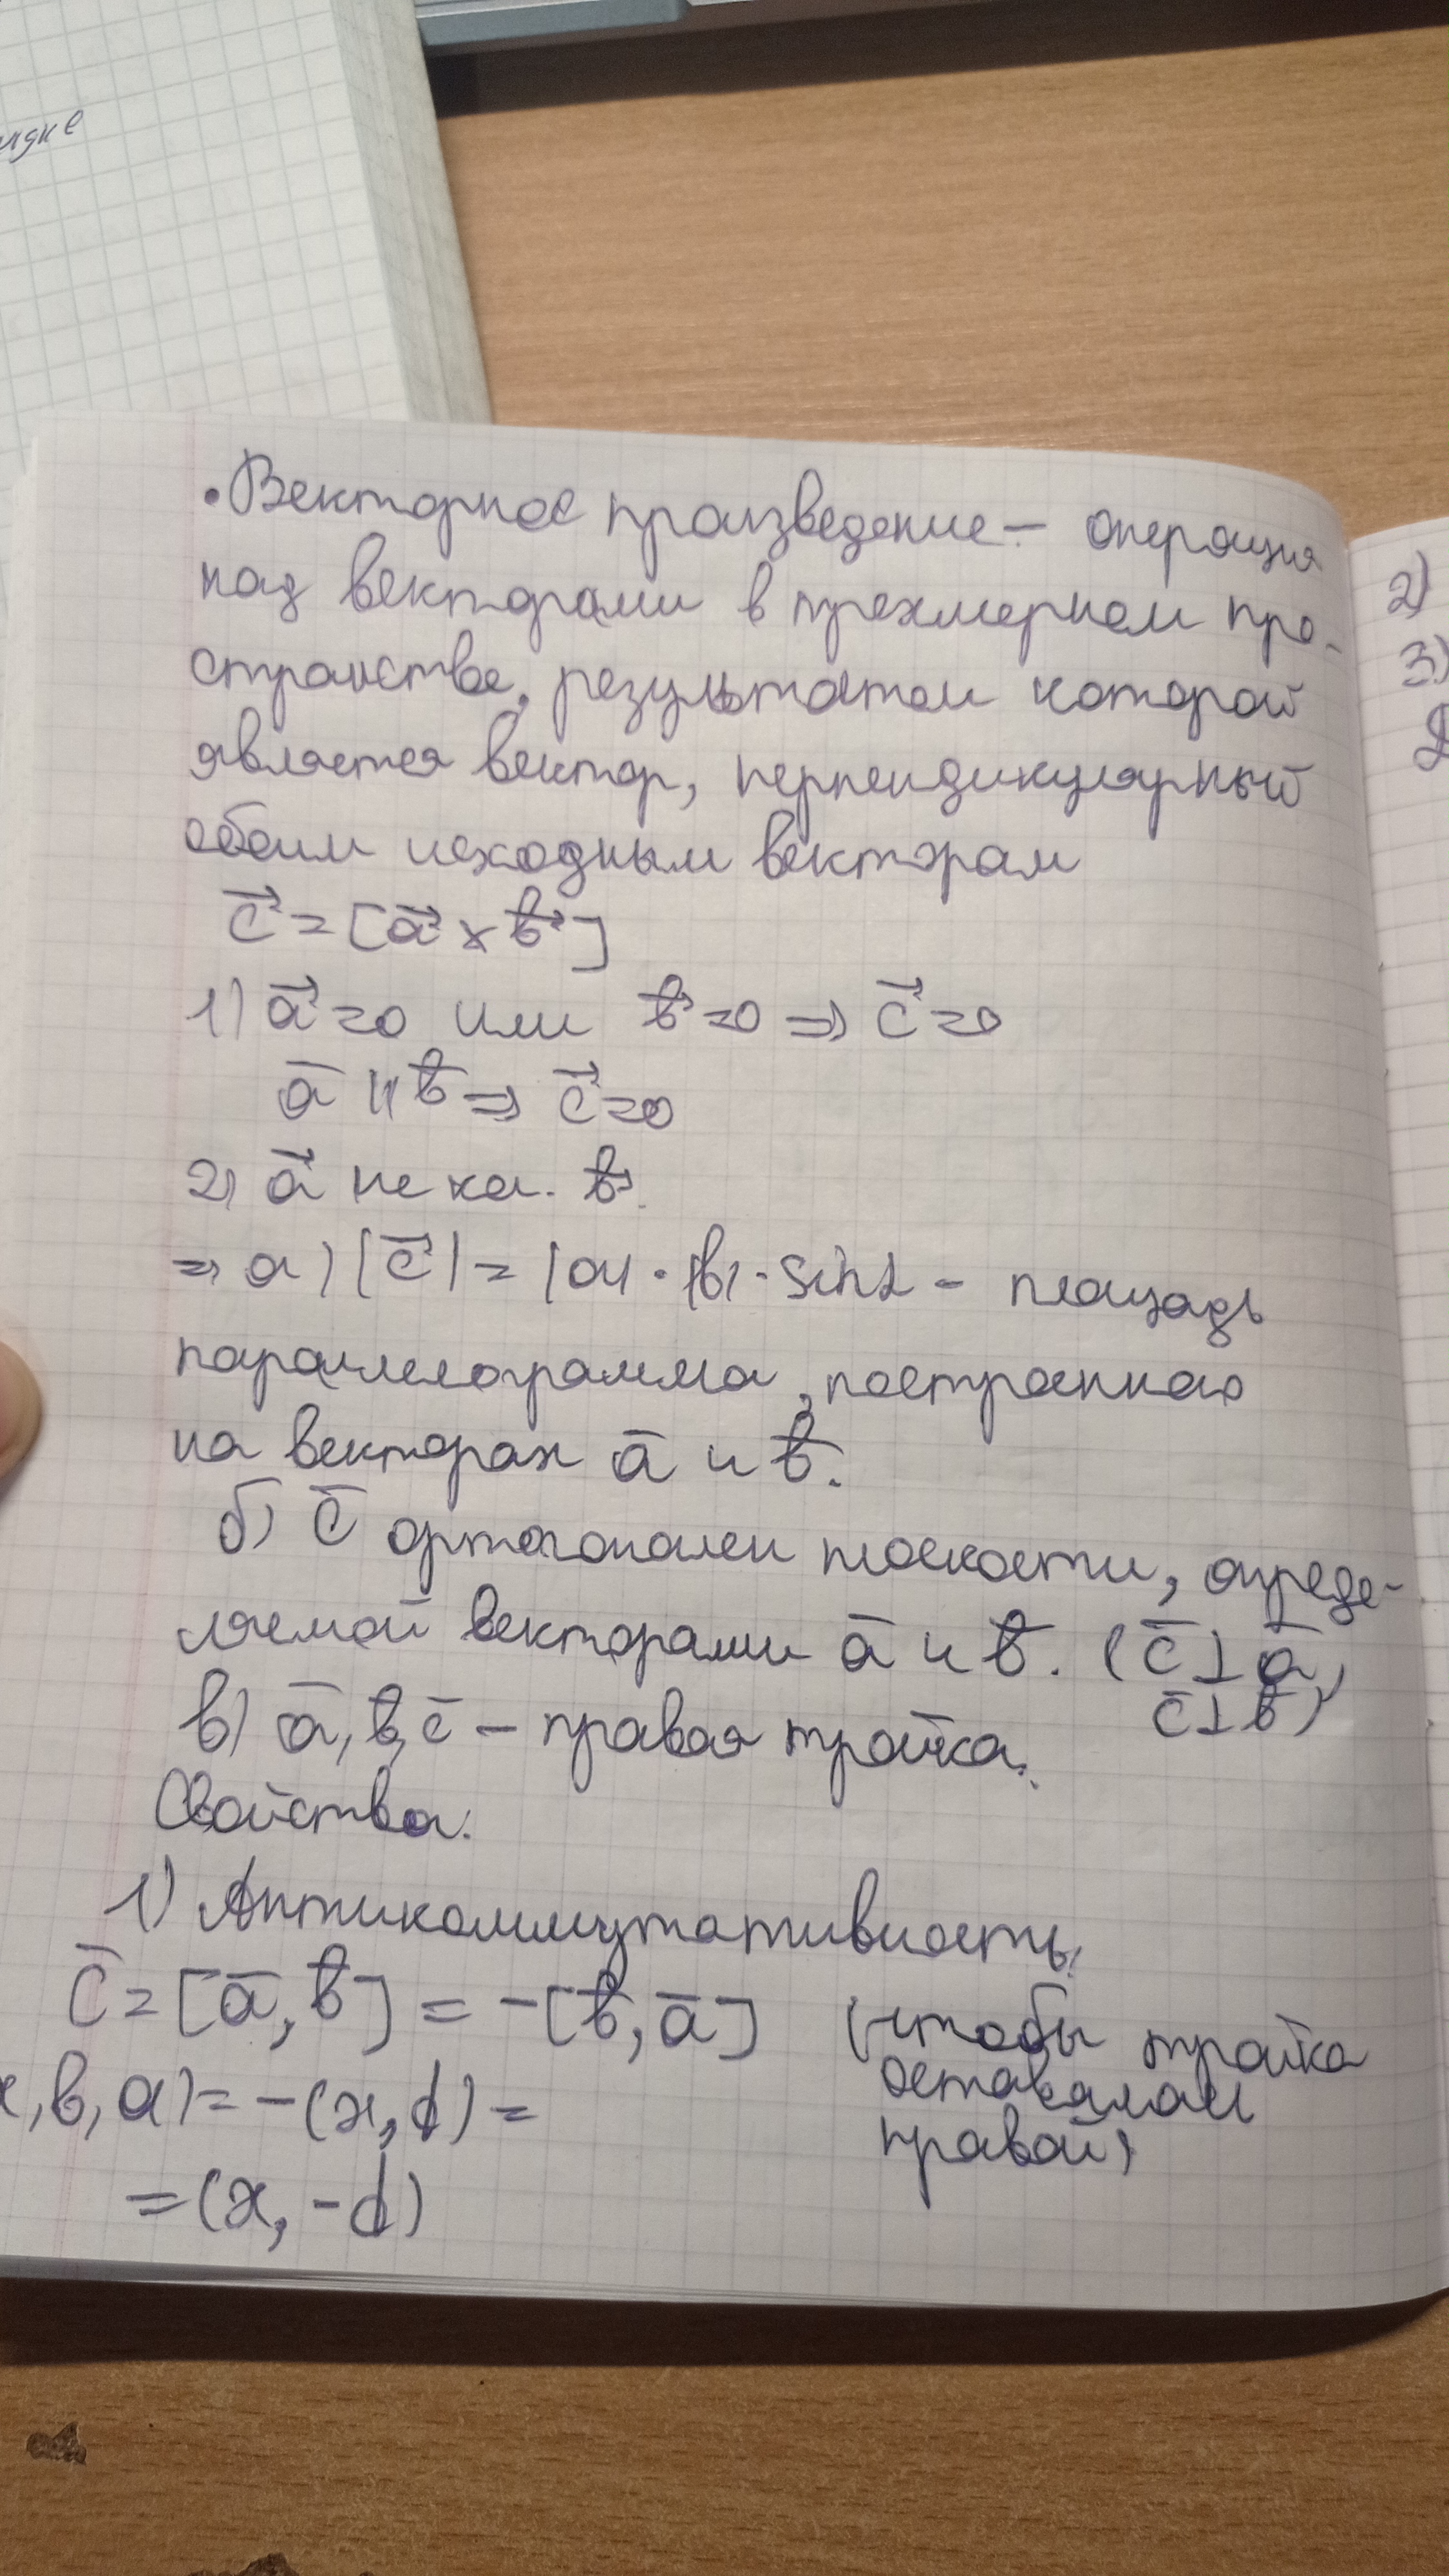 • Векторное произведение – операция
над векторами в трехмерном про-
странстве, результатом которой
является вектор, перпендикулярный
обоим исходным векторам
c⃗ = [a⃗ × b⃗]
1) a⃗ = 0 или b⃗ = 0 ⇒ c⃗ = 0
a̅ || b̅ ⇒ c⃗ = 0
2) a⃗ не кол. b⃗.
⇒ а) |c⃗| = |a| · |b| · sin α – площадь
параллелограмма, построенного
на векторах a̅ и b̅.
б) c̅ ортогонален плоскости, опреде-
ляемой векторами a̅ и b̅. (c̅ ⊥ a̅,
c̅ ⊥ b̅)
в) a̅, b̅, c̅ – правая тройка.
Свойства:
1) Антикоммутативность:
c̅ = [a̅, b̅] = -[b̅, a̅] (чтобы тройка
оставалась
правой)
x, b, a) = -(x, d) =
= (x, -d)
2)
3)